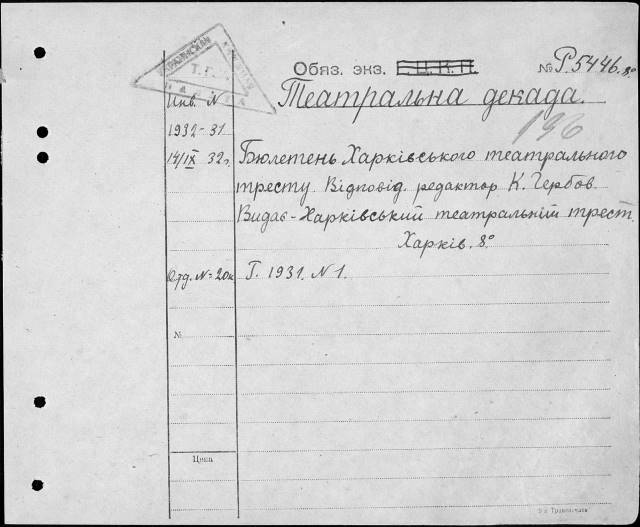 УКРАИНСКАЯ КНИЖНАЯ ПАЛАТА
Обяз. экз. Е.Ц.К.П. № Р.5446.8°
Театральна декада.
Инв. N
196
1932-31
14/IX 32г.
Бюлетень Харківського театрального
тресту. Відповід. редактор К. Гербов.
Видає-Харківський театральний трест.
Харків. 8°
Отд. N=20к Г. 1931. N1.
№
Цена